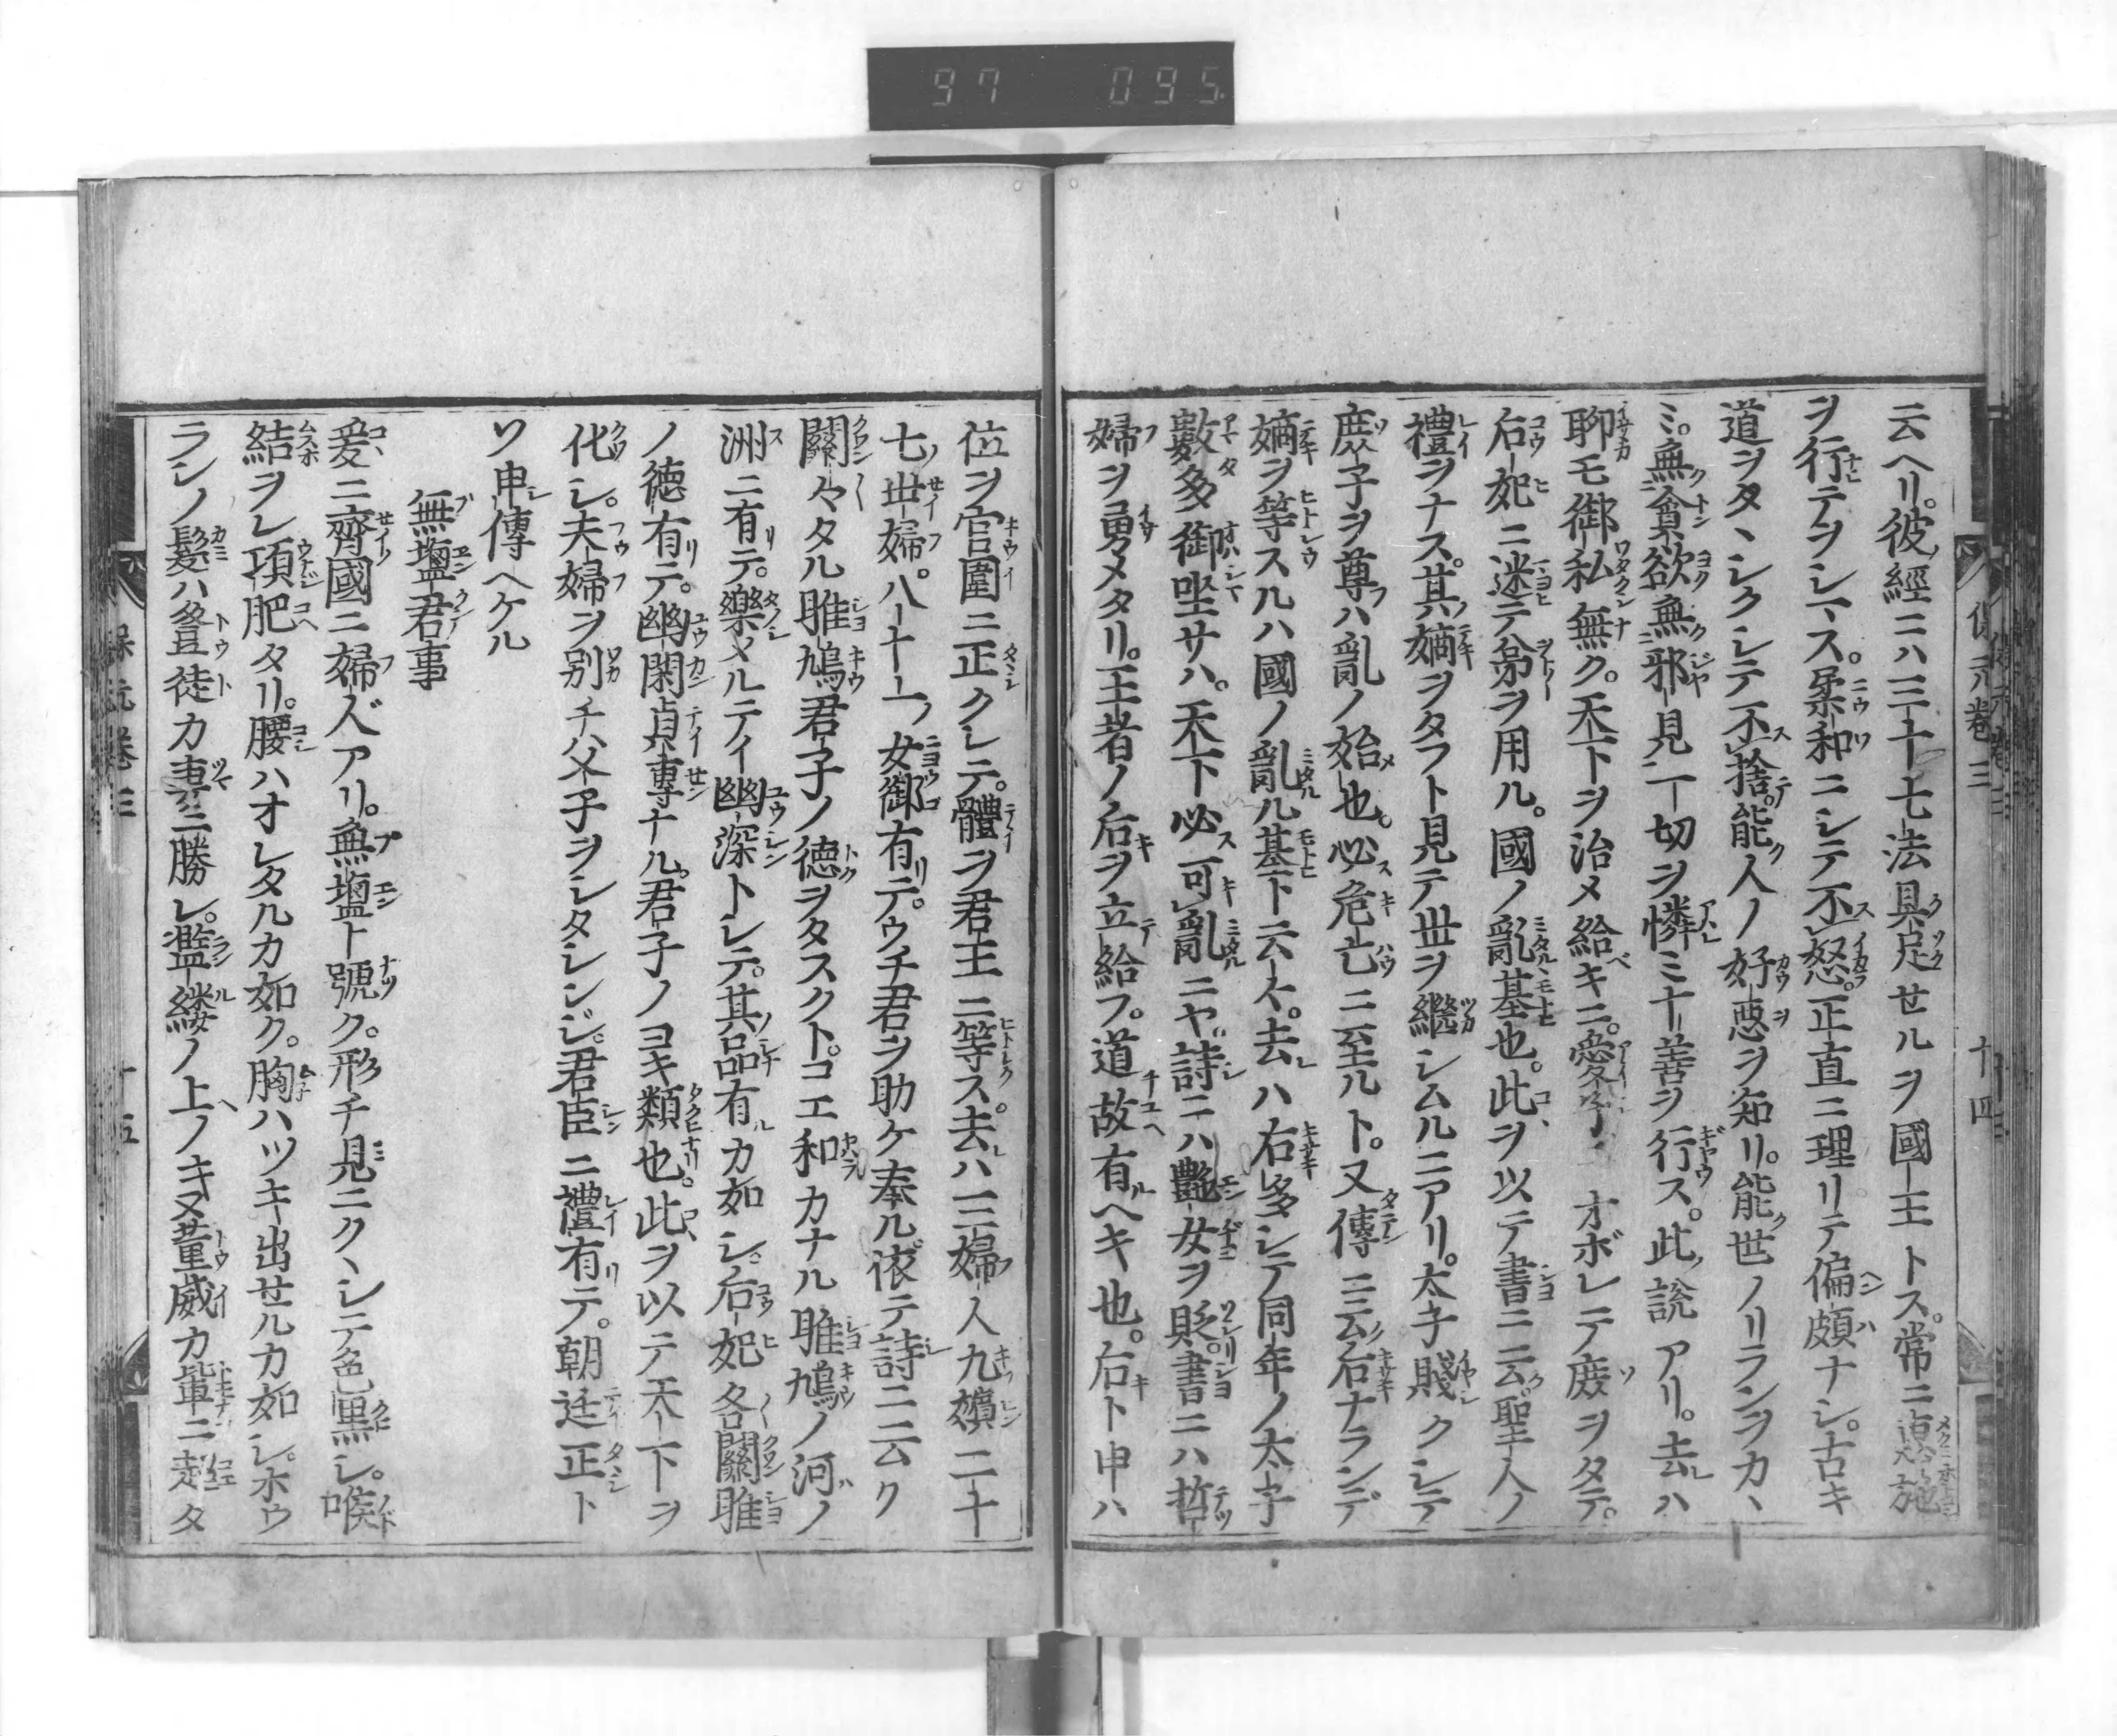 97 095
保元卷三
十四
云ヘリ。彼經ニハ三十七法具足セルヲ國王トス。常ニ惠施
ヲ行テヲシマス。柔和ニシテ不怒。正直ニ理リテ偏頗ナシ。古キ
道ヲタヽシクシテ不捨。能人ノ好惡ヲ知リ。能世ノリランヲカヽ
ミ。無貪欲無邪見一切ヲ憐ミ十善ヲ行ス。此説アリ。去ハ
聊モ御私無ク。天下ヲ治メ給ベキニ。愛子ニオボレテ庶ヲタテ。
后妃ニ迷テ弟ヲ用ル。國ノ亂基也。此ヲ以テ書ニ云聖人ノ
禮ヲナス。其嫡ヲタフト見テ世ヲ繼シムルニアリ。太子賤クシテ
庶子ヲ尊ハ亂ノ始也。必危亡ニ至ルト。又傳ニ云后ナランデ
嫡ヲ等スルハ國ノ亂ル基ト云々。去ハ右多シテ同年ノ太子
數多御坐サハ。天下必可亂ニヤ。詩ニハ艶女ヲ貶。書ニハ哲
婦ヲ勇メタリ。王者ノ后ヲ立給フ。道故有ヘキ也。后ト申ハ
位ヲ宮圍ニ正クシテ。體ヲ君王ニ等ス。去ハ三婦人九嬪二十
七世婦。八十一ノ女御有テ。ウチ君ヲ助ケ奉ル。依テ詩ニ云ク
關々タル雎鳩君子ノ徳ヲタスクト。コエ和カナル雎鳩ノ河ノ
洲ニ有テ。樂メルテイ幽深トシテ。其品有カ如シ。后妃各關雎
ノ徳有テ。幽閑貞專ナル。君子ノヨキ類也。此ヲ以テ天下ヲ
化シ。夫婦ヲ別チ父子ヲシタシンジ。君臣ニ禮有テ。朝廷正ト
ソ申傳ヘケル
無鹽君事
爰ニ齊國ニ婦人アリ。無鹽ト號ク。形チ見ニクヽシテ色黒シ。喉
結ヲレ項肥タリ。腰ハオレタルカ如ク。胸ハツキ出セルカ如シ。ホウ
ランノ髮ハ登徒カ妻ニ勝レ。濫縷ノ上ノキヌ董威カ輩ニ超タ
保元卷三
十五